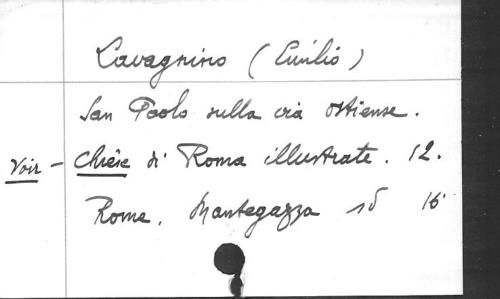 Lavagnino (Emilio)
San Paolo sulla via ostiense.
Voir - Chiese di Roma illustrate. 12.
Rome. Mantegazza sd 16